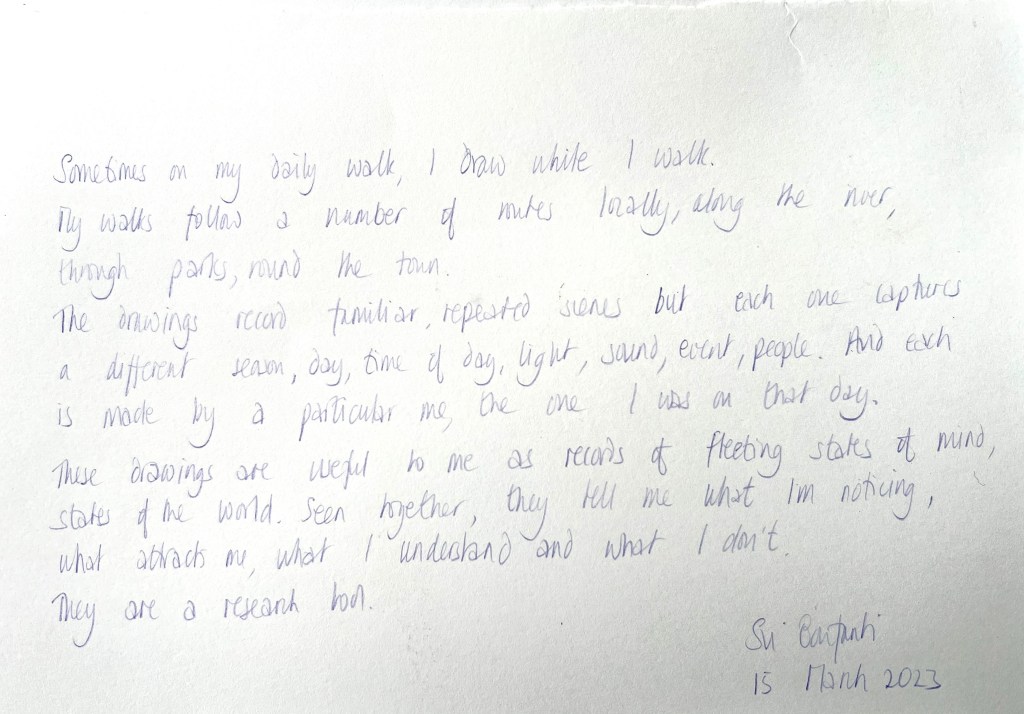 Sometimes on my daily walk, I draw while I walk.
My walks follow a number of routes locally, along the river,
through parks, round the town.
The drawings record familiar, repeated scenes but each one captures
a different season, day, time of day, light, sound, event, people. And each
is made by a particular me, the one I was on that day.
These drawings are useful to me as records of fleeting states of mind,
states of the world. Seen together, they tell me what I'm noticing,
what attracts me, what I understand and what I don't.
They are a research tool.
15 March 2023